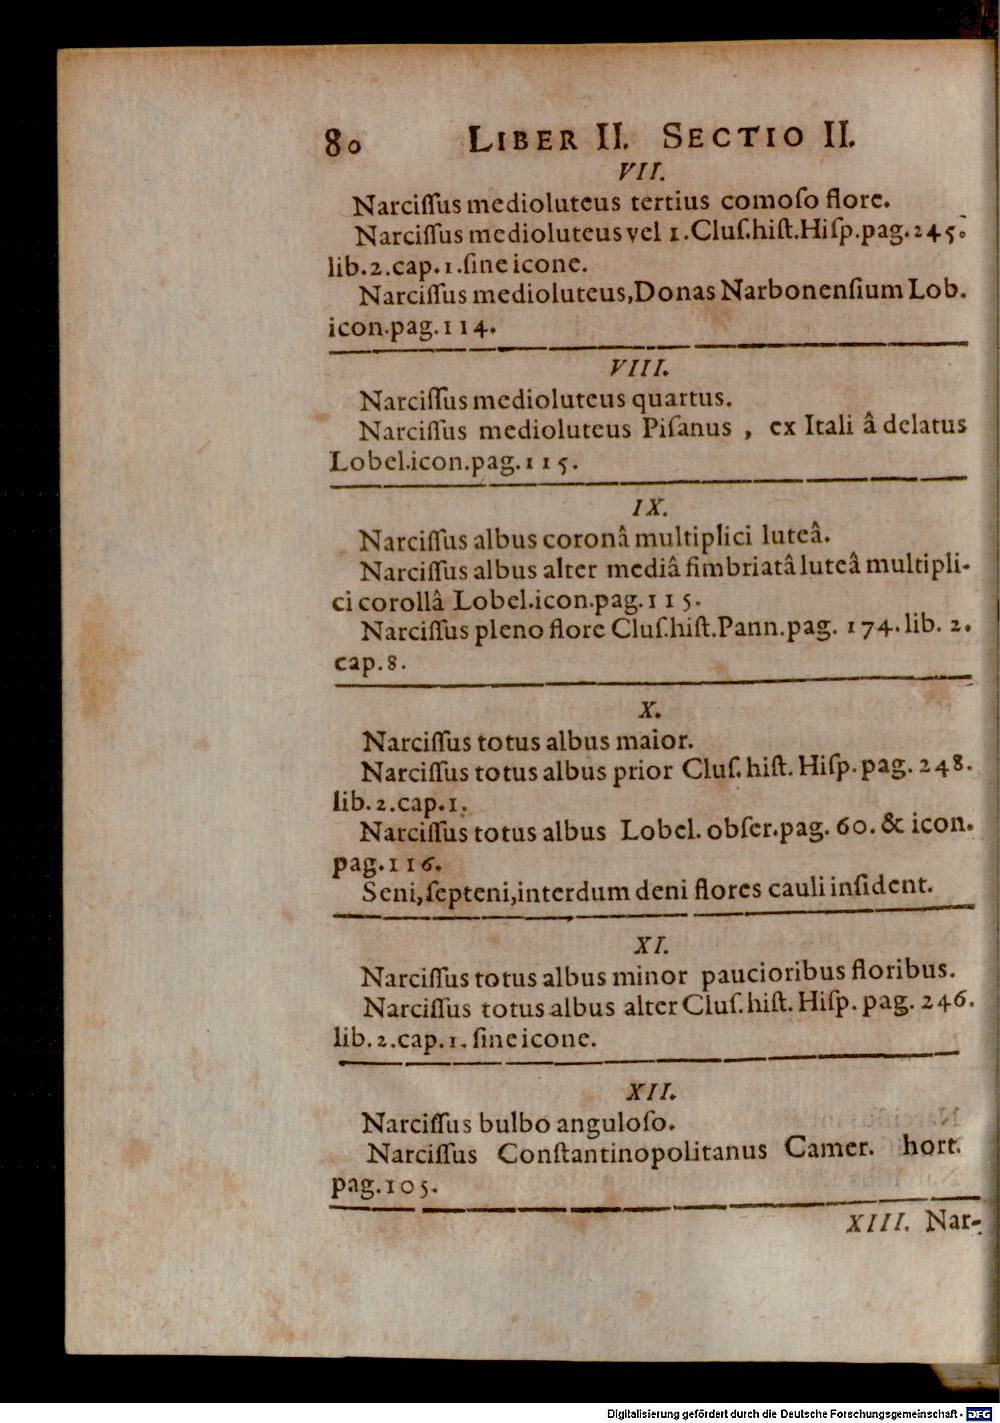 80 LIBER II. SECTIO II.
VII.
Narciſſus medioluteus tertius comoſo flore.
Narciſſus medioluteus vel 1.Cluſ.hiſt.Hiſp.pag.245.
lib.2.cap.1.ſine icone.
Narciſſus medioluteus,Donas Narbonenſium Lob.
icon.pag.114.
VIII.
Narciſſus medioluteus quartus.
Narciſſus medioluteus Piſanus , ex Itali â delatus
Lobel.icon.pag.115.
IX.
Narciſſus albus coronâ multiplici luteâ.
Narciſſus albus alter mediâ fimbriatâ luteâ multipli-
ci corollâ Lobel.icon.pag.115.
Narciſſus pleno flore Cluſ.hiſt.Pann.pag. 174.lib. 2.
cap.8.
X.
Narciſſus totus albus maior.
Narciſſus totus albus prior Cluſ.hiſt.Hiſp.pag.248.
lib.2.cap.1.
Narciſſus totus albus Lobel. obſer.pag. 60. & icon.
pag.116.
Seni,ſepteni,interdum deni flores cauli inſident.
XI.
Narciſſus totus albus minor paucioribus floribus.
Narciſſus totus albus alter Cluſ.hiſt.Hiſp.pag. 246.
lib.2.cap.1.ſine icone.
XII.
Narciſſus bulbo anguloſo.
Narciſſus Conſtantinopolitanus Camer. hort.
pag.105.
XIII. Nar-
Digitalisierung gefördert durch die Deutsche Forschungsgemeinschaft - DFG